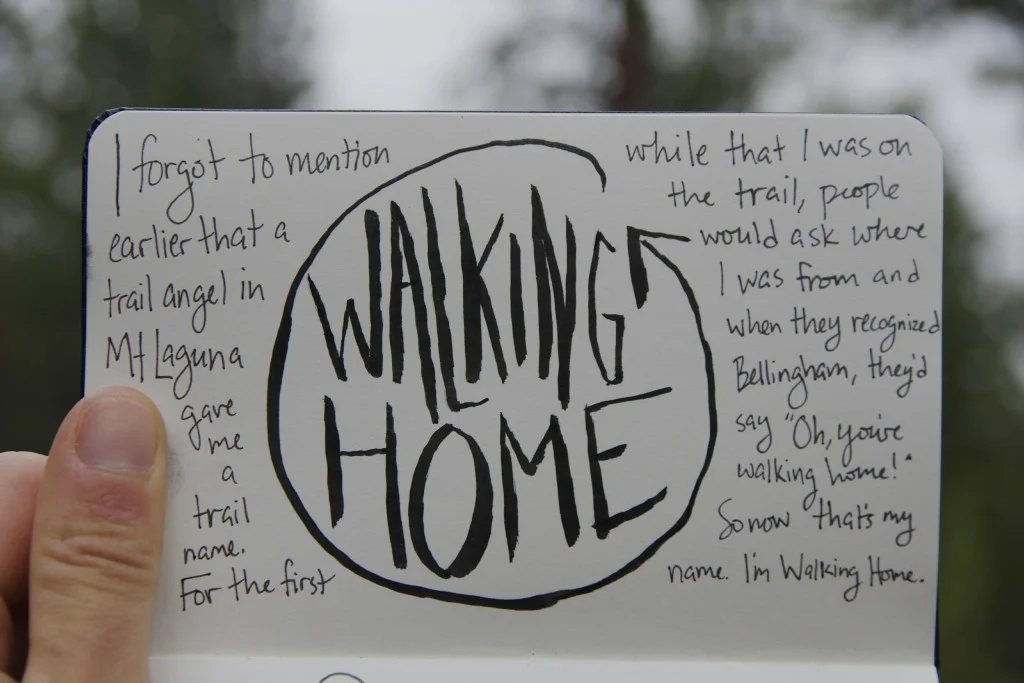 I forgot to mention
earlier that a
trail angel in
Mt Laguna
gave
me
a
trail
name.
For the first
WALKING
HOME
while that I was on
the trail, people
would ask where
I was from and
when they recognized
Bellingham, they'd
say "Oh, you're
walking home!"
So now that's my
name. I'm Walking Home.